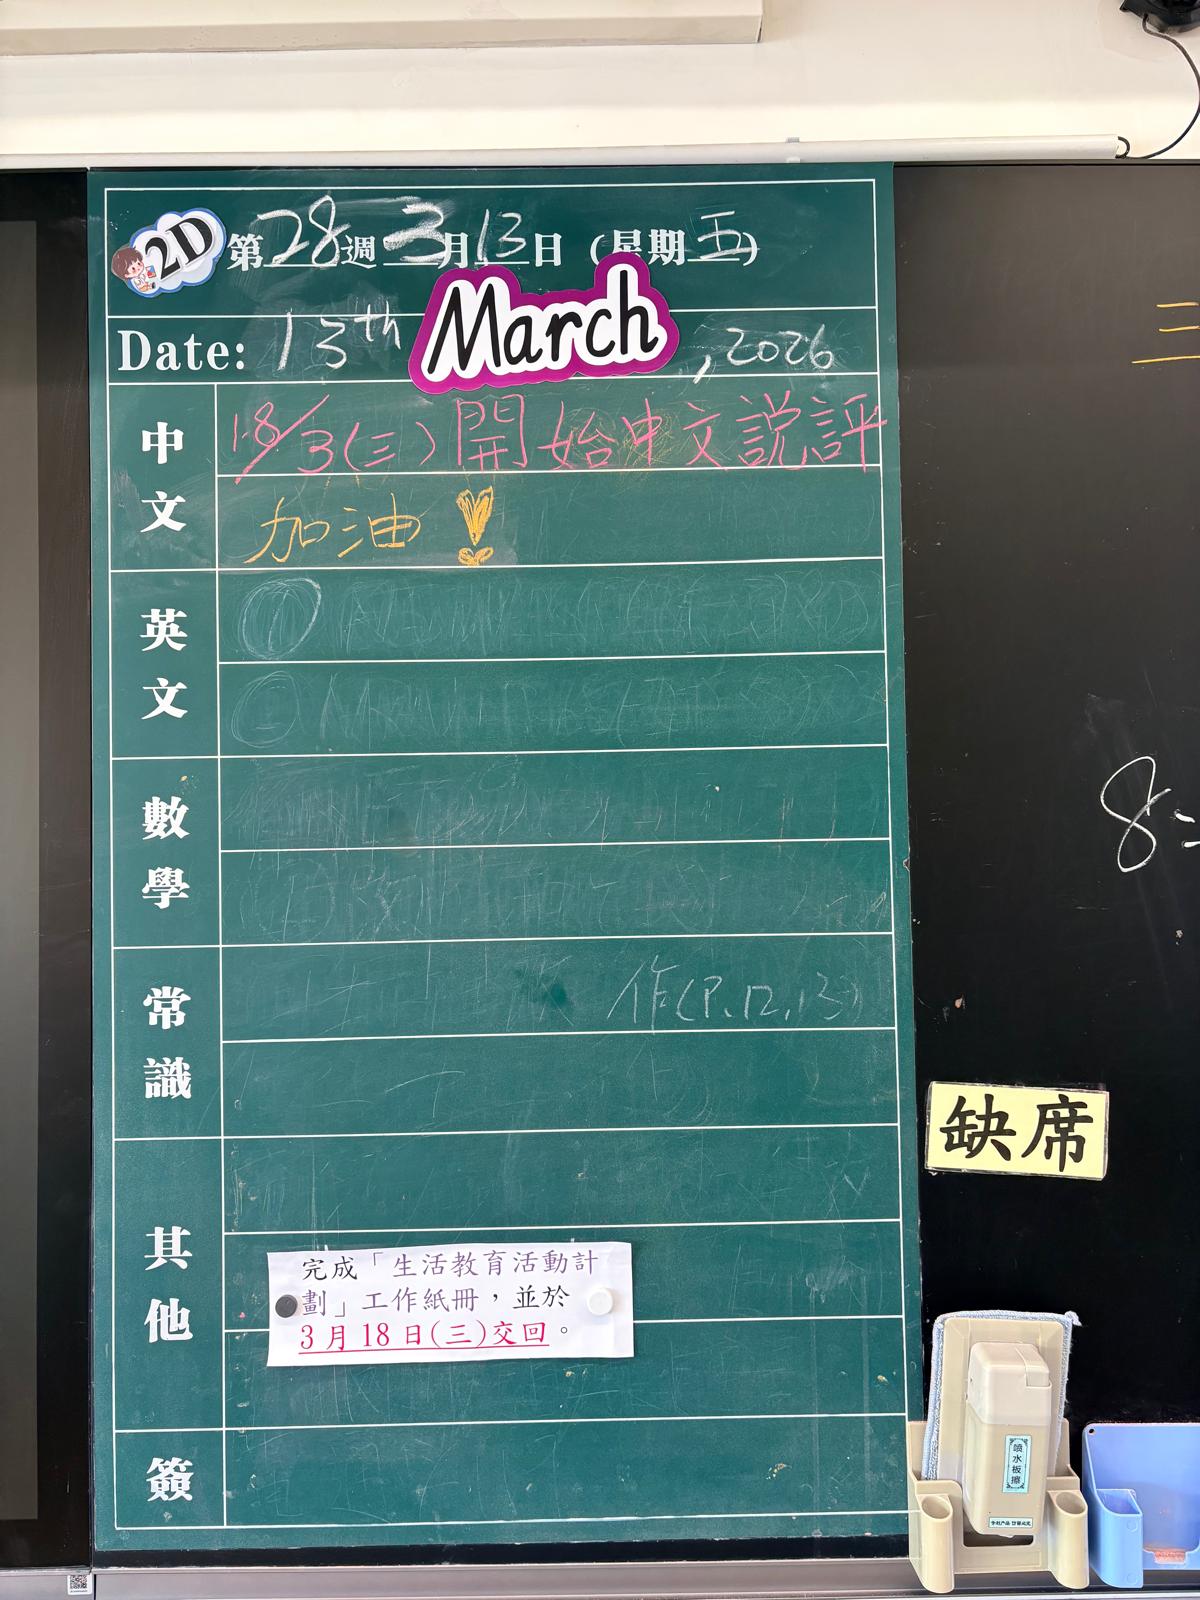 2D 第28週 3月13日 (星期五)
Date: 13th March, 2026
中文
18/3(三)開始中文說評
加油!
英文
數學
常識
作(P.12,13)
其他
完成「生活教育活動計
劃」工作紙冊，並於
3月18日(三)交回。
簽
缺席
噴水板擦
8: